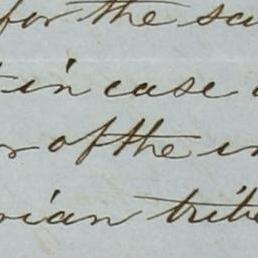 for the sa
in case
of the in
rian tribe